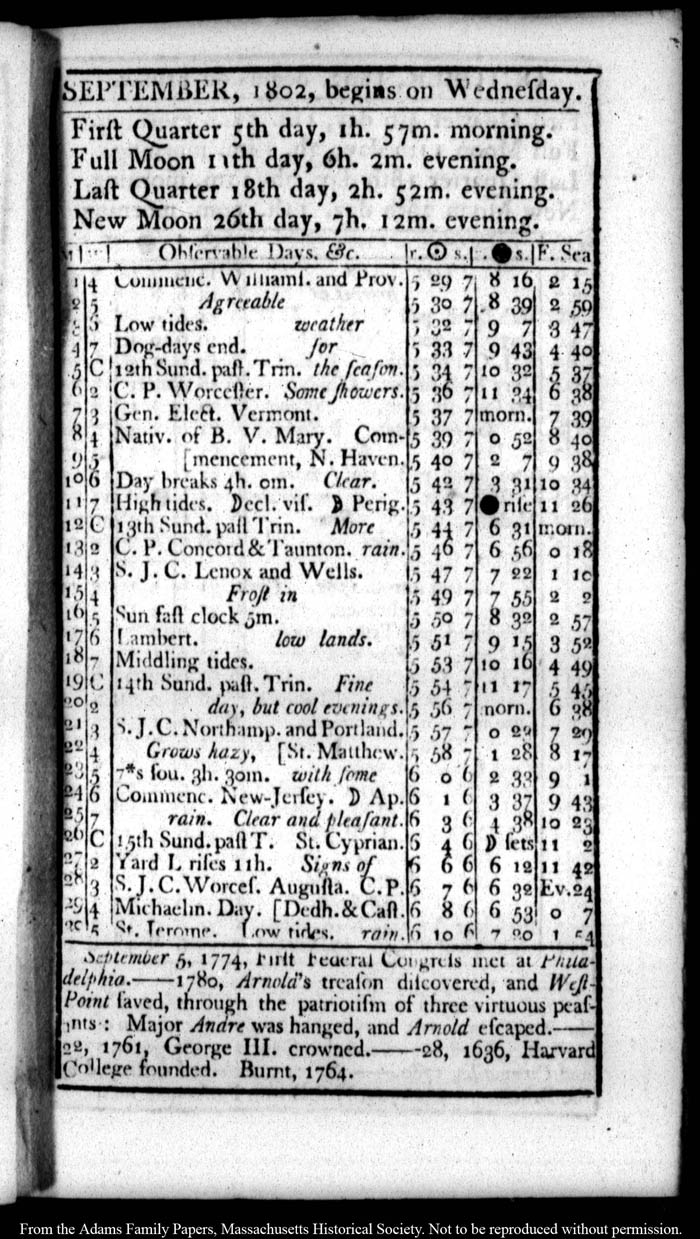 SEPTEMBER, 1802, begins on Wedneſday.
Firſt Quarter 5th day, 1h. 57m. morning.
Full Moon 11th day, 6h. 2m. evening.
Laſt Quarter 18th day, 2h. 52m. evening.
New Moon 26th day, 7h. 12m. evening.
Obſervable Days. &c. r. ☉ s. ● s. F. Sea
1 4 Commenc. Williamſ. and Prov. 5 29 7 8 16 2 15
2 5 Agreeable 5 30 7 8 39 2 59
6 Low tides. weather 5 32 7 9 7 3 47
4 7 Dog-days end. for 5 33 7 9 43 4 40
5 C 12th Sund. paſt. Trin. the ſeaſon. 5 34 7 10 32 5 37
6 2 C. P. Worceſter. Some ſhowers. 5 36 7 11 34 6 38
7 3 Gen. Elect. Vermont. 5 37 7 morn. 7 39
8 4 Nativ. of B. V. Mary. Com- 5 39 7 0 52 8 40
9 5 [mencement, N. Haven. 5 40 7 2 7 9 38
10 6 Day breaks 4h. 0m. Clear. 5 42 7 3 31 10 34
11 7 High tides. Decl. viſ. D Perig. 5 43 7 ● riſe 11 26
12 C 13th Sund. paſt Trin. More 5 44 7 6 31 morn.
13 2 C. P. Concord & Taunton. rain. 5 46 7 6 56 0 18
14 3 S. J. C. Lenox and Wells. 5 47 7 7 22 1 10
15 4 Froſt in 5 49 7 7 55 2 2
16 5 Sun faſt clock 5m. 5 50 7 8 32 2 57
17 6 Lambert. low lands. 5 51 7 9 15 3 52
18 7 Middling tides. 5 53 7 10 16 4 49
19 C 14th Sund. paſt. Trin. Fine 5 54 7 11 17 5 45
20 2 day, but cool evenings. 5 56 7 morn. 6 38
21 3 S. J. C. Northamp. and Portland. 5 57 7 0 22 7 29
22 4 Grows hazy, [St. Matthew. 5 58 7 1 28 8 17
23 5 7*s ſou. 3h. 30m. with ſome 6 0 6 2 33 9 1
24 6 Commenc. New-Jerſey. D Ap. 6 1 6 3 37 9 43
25 7 rain. Clear and pleaſant. 6 3 6 4 38 10 23
26 C 15th Sund. paſt T. St. Cyprian. 6 4 6 D ſets 11 2
27 2 Yard L riſes 11h. Signs of 6 6 6 6 12 11 42
28 3 S. J. C. Worceſ. Auguſta. C. P. 6 7 6 6 32 Ev. 24
29 4 Michaelm. Day. [Dedh. & Caſt. 6 8 6 6 53 0 7
5 St. Jerome. Low tides. rain. 6 10 6 7 20 1 54
September 5, 1774, Firſt Federal Congreſs met at Phila-
delphia.——1780, Arnold's treaſon diſcovered, and Weſt-
Point ſaved, through the patriotiſm of three virtuous peaſ-
ants: Major Andre was hanged, and Arnold eſcaped.——
22, 1761, George III. crowned.——28, 1636, Harvard
College founded. Burnt, 1764.
From the Adams Family Papers, Massachusetts Historical Society. Not to be reproduced without permission.